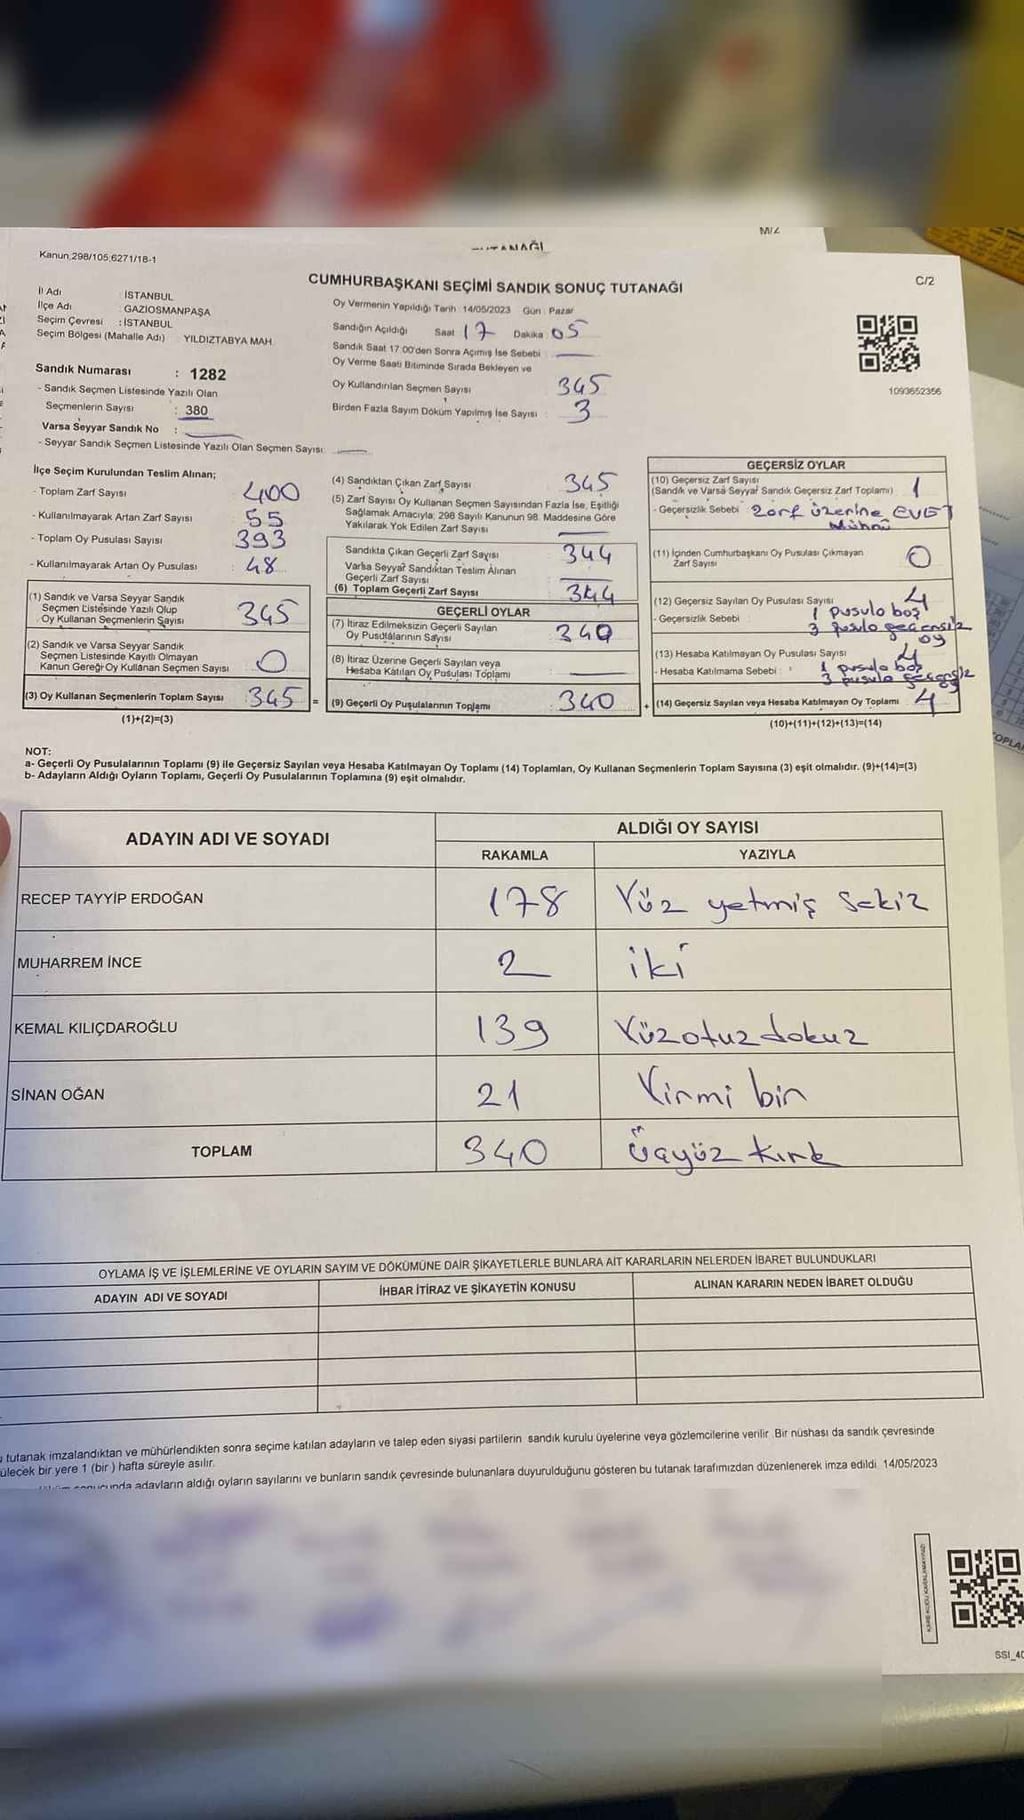 M/2
TUTANAĞI
Kanun;298/105;6271/18-1
C/2
CUMHURBAŞKANI SEÇİMİ SANDIK SONUÇ TUTANAĞI
İl Adı : İSTANBUL
İlçe Adı : GAZİOSMANPAŞA
Seçim Çevresi : İSTANBUL
Seçim Bölgesi (Mahalle Adı) YILDIZTABYA MAH.
Oy Vermenin Yapıldığı Tarih 14/05/2023 Gün : Pazar
Sandığın Açıldığı Saat 17 Dakika 05
Sandık Saat 17:00'den Sonra Açılmış İse Sebebi
Oy Verme Saati Bitiminde Sırada Bekleyen ve
Oy Kullandırılan Seçmen Sayısı : 345
Birden Fazla Sayım Döküm Yapılmış İse Sayısı : 3
1093652356
Sandık Numarası : 1282
- Sandık Seçmen Listesinde Yazılı Olan
Seçmenlerin Sayısı : 380
Varsa Seyyar Sandık No :
- Seyyar Sandık Seçmen Listesinde Yazılı Olan Seçmen Sayısı:
İlçe Seçim Kurulundan Teslim Alınan;
- Toplam Zarf Sayısı 400
- Kullanılmayarak Artan Zarf Sayısı 55
- Toplam Oy Pusulası Sayısı 393
- Kullanılmayarak Artan Oy Pusulası 48
(1) Sandık ve Varsa Seyyar Sandık
Seçmen Listesinde Yazılı Olup
Oy Kullanan Seçmenlerin Sayısı 345
(2) Sandık ve Varsa Seyyar Sandık
Seçmen Listesinde Kayıtlı Olmayan
Kanun Gereği Oy Kullanan Seçmen Sayısı 0
(3) Oy Kullanan Seçmenlerin Toplam Sayısı 345 =
(1)+(2)=(3)
(4) Sandıktan Çıkan Zarf Sayısı 345
(5) Zarf Sayısı Oy Kullanan Seçmen Sayısından Fazla İse, Eşitliği
Sağlamak Amacıyla; 298 Sayılı Kanunun 98. Maddesine Göre
Yakılarak Yok Edilen Zarf Sayısı
Sandıkta Çıkan Geçerli Zarf Sayısı 344
Varsa Seyyar Sandıktan Teslim Alınan
Geçerli Zarf Sayısı
(6) Toplam Geçerli Zarf Sayısı 344
GEÇERLİ OYLAR
(7) İtiraz Edilmeksizin Geçerli Sayılan
Oy Pusulalarının Sayısı 340
(8) İtiraz Üzerine Geçerli Sayılan veya
Hesaba Katılan Oy Pusulası Toplamı
(9) Geçerli Oy Pusulalarının Toplamı 340 +
GEÇERSİZ OYLAR
(10) Geçersiz Zarf Sayısı
(Sandık ve Varsa Seyyar Sandık Geçersiz Zarf Toplamı) 1
- Geçersizlik Sebebi : Zarf üzerine EVET
Mührü
(11) İçinden Cumhurbaşkanı Oy Pusulası Çıkmayan
Zarf Sayısı 0
(12) Geçersiz Sayılan Oy Pusulası Sayısı 4
- Geçersizlik Sebebi : 1 pusula boş
3 pusula geçersiz
oy
(13) Hesaba Katılmayan Oy Pusulası Sayısı 4
- Hesaba Katılmama Sebebi : 1 pusula boş
3 pusula geçersiz
oy
(14) Geçersiz Sayılan veya Hesaba Katılmayan Oy Toplamı 4
(10)+(11)+(12)+(13)=(14)
NOT:
a- Geçerli Oy Pusulalarının Toplamı (9) ile Geçersiz Sayılan veya Hesaba Katılmayan Oy Toplamı (14) Toplamları, Oy Kullanan Seçmenlerin Toplam Sayısına (3) eşit olmalıdır. (9)+(14)=(3)
b- Adayların Aldığı Oyların Toplamı, Geçerli Oy Pusulalarının Toplamına (9) eşit olmalıdır.
ADAYIN ADI VE SOYADI ALDIĞI OY SAYISI
RAKAMLA YAZIYLA
RECEP TAYYİP ERDOĞAN 178 Yüz yetmiş sekiz
MUHARREM İNCE 2 iki
KEMAL KILIÇDAROĞLU 139 Yüzotuzdokuz
SİNAN OĞAN 21 Yirmi bir
TOPLAM 340 üçyüz kırk
OYLAMA İŞ VE İŞLEMLERİNE VE OYLARIN SAYIM VE DÖKÜMÜNE DAİR ŞİKAYETLERLE BUNLARA AİT KARARLARIN NELERDEN İBARET BULUNDUKLARI
ADAYIN ADI VE SOYADI İHBAR İTİRAZ VE ŞİKAYETİN KONUSU ALINAN KARARIN NEDEN İBARET OLDUĞU
tutanak imzalandıktan ve mühürlendikten sonra seçime katılan adayların ve talep eden siyasi partilerin sandık kurulu üyelerine veya gözlemcilerine verilir. Bir nüshası da sandık çevresinde
ülecek bir yere 1 (bir ) hafta süreyle asılır.
sonucunda adayların aldığı oyların sayılarını ve bunların sandık çevresinde bulunanlara duyurulduğunu gösteren bu tutanak tarafımızdan düzenlenerek imza edildi. 14/05/2023
SSI_40